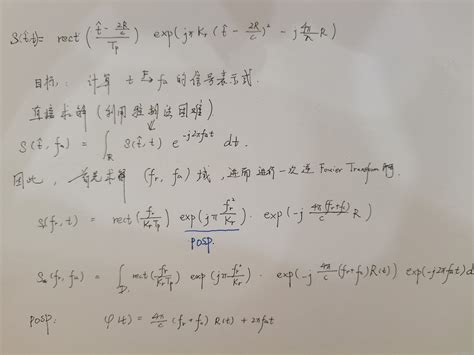 S(t̂,t) = rect((t̂ - 2R/c)/Tp) exp(jπKr(t̂ - 2R/c)² - j4π/λ R)
目标： 计算 t → fa 的信号表示式.
直接求解 (利用驻相法困难)
S(t̂, fa) = ∫_R S(t̂, t) e^{-j2πfat} dt.
因此， 首先求解 (fr, fa) 域, 进而进行一次逆 Fourier Transform
S(fr, t) = rect(fr/KrTp) exp(jπ fr²/Kr) · exp(-j 4π(fr+fc)/c R)
POSP.
(fr, fa) = ∫ rect(fr/KrTp) exp(jπ fr²/Kr) · exp(-j 4π/c (fr+fc)R(t)) exp(-j2πfat)d
POSP: φ(t) = 4π/c (fr+fc) R(t) + 2πfat